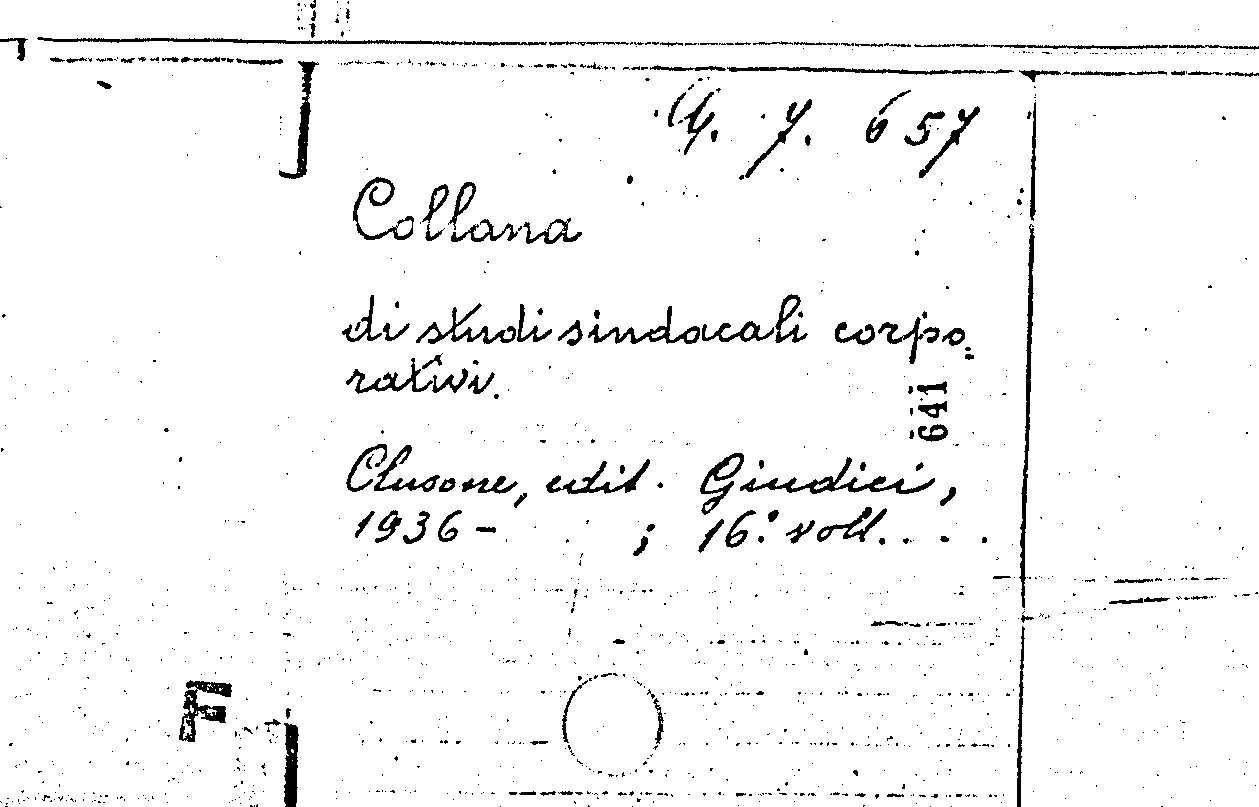 7. 657
Collana
di studi sindacali corpo=
rativi.
641
Clusone, edit. Giudici,
1936- ; 16.° voll. . . .
F